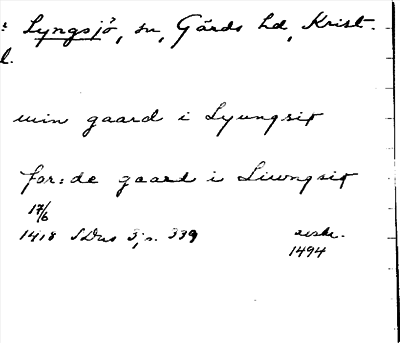 : Lyngsjö, sn, Gärds hd, Krist.
l.
min gaard i Lyungsiø
for:de gaard i Liwngsiø
17/6
1418 SDns 3, s. 339 avskr.
1494